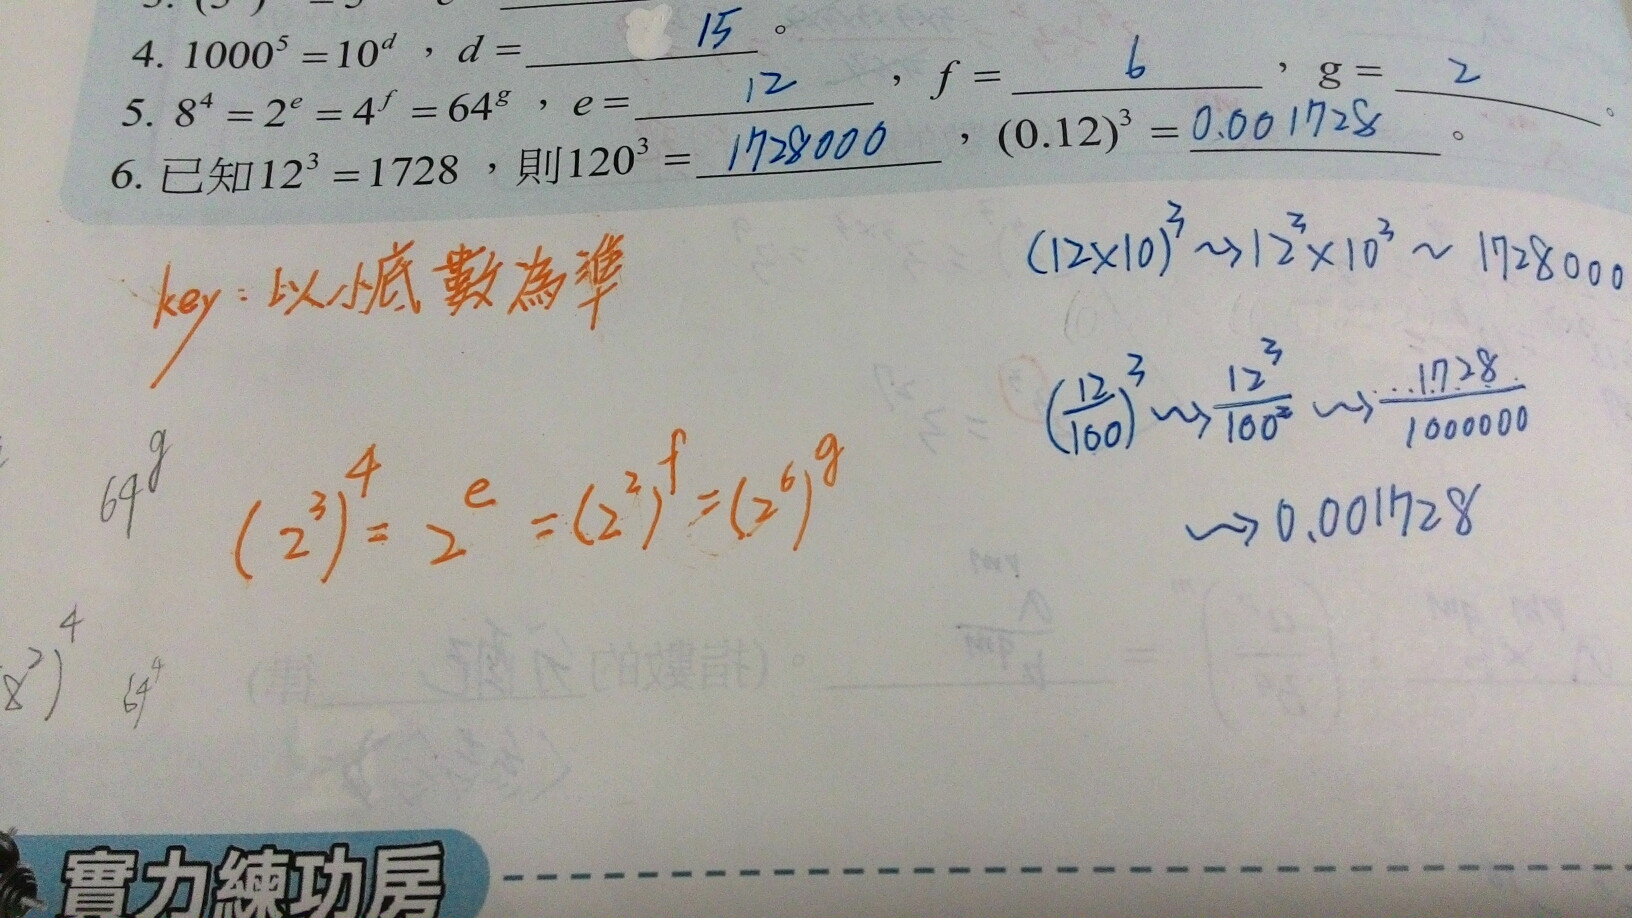 4. 1000⁵ = 10ᵈ , d = 15 。
5. 8⁴ = 2ᵉ = 4ᶠ = 64ᵍ , e = 12 , f = 6 , g = 2 。
6. 已知12³ = 1728 ,則120³ = 1728000 , (0.12)³ = 0.001728 。
(12×10)³ ⇝ 12³×10³ ~ 1728000
key : 以小底數為準
(12/100)³ ⇝ 12³/100³ ⇝ 1728/1000000
⇝ 0.001728
64ᵍ
(2³)⁴ = 2ᵉ = (2²)ᶠ = (2⁶)ᵍ
64⁴
實力練功房